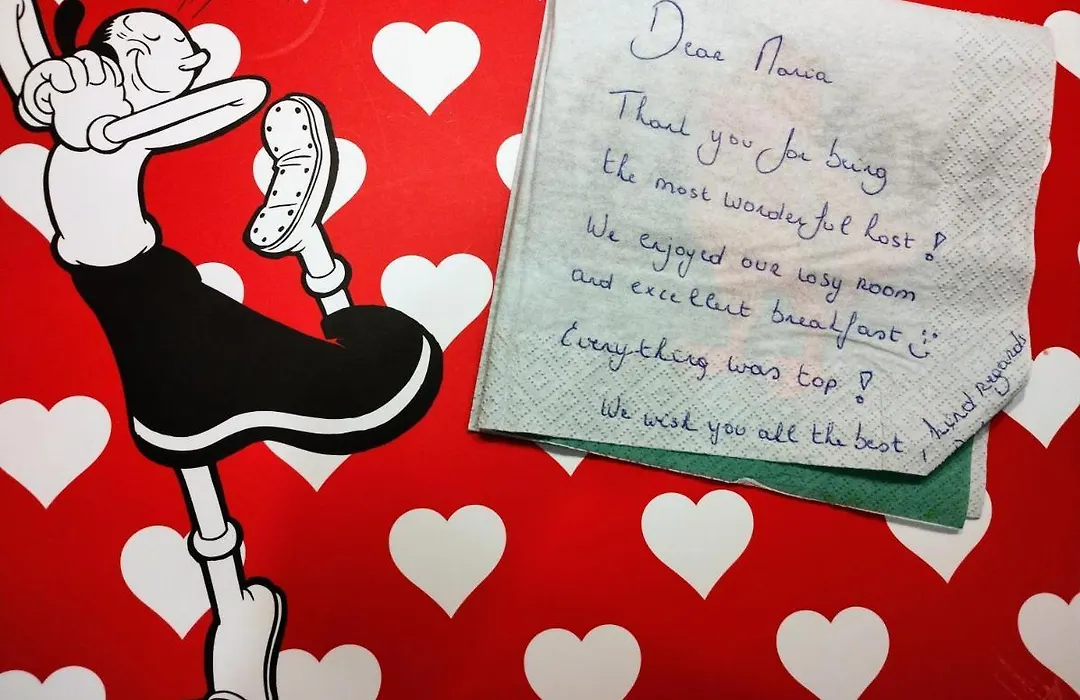 Dear Maria
Thank you for being
the most wonderful host !
We enjoyed our cosy room
and excellent breakfast :)
Everything was top !
We wish you all the best ,
kind regards